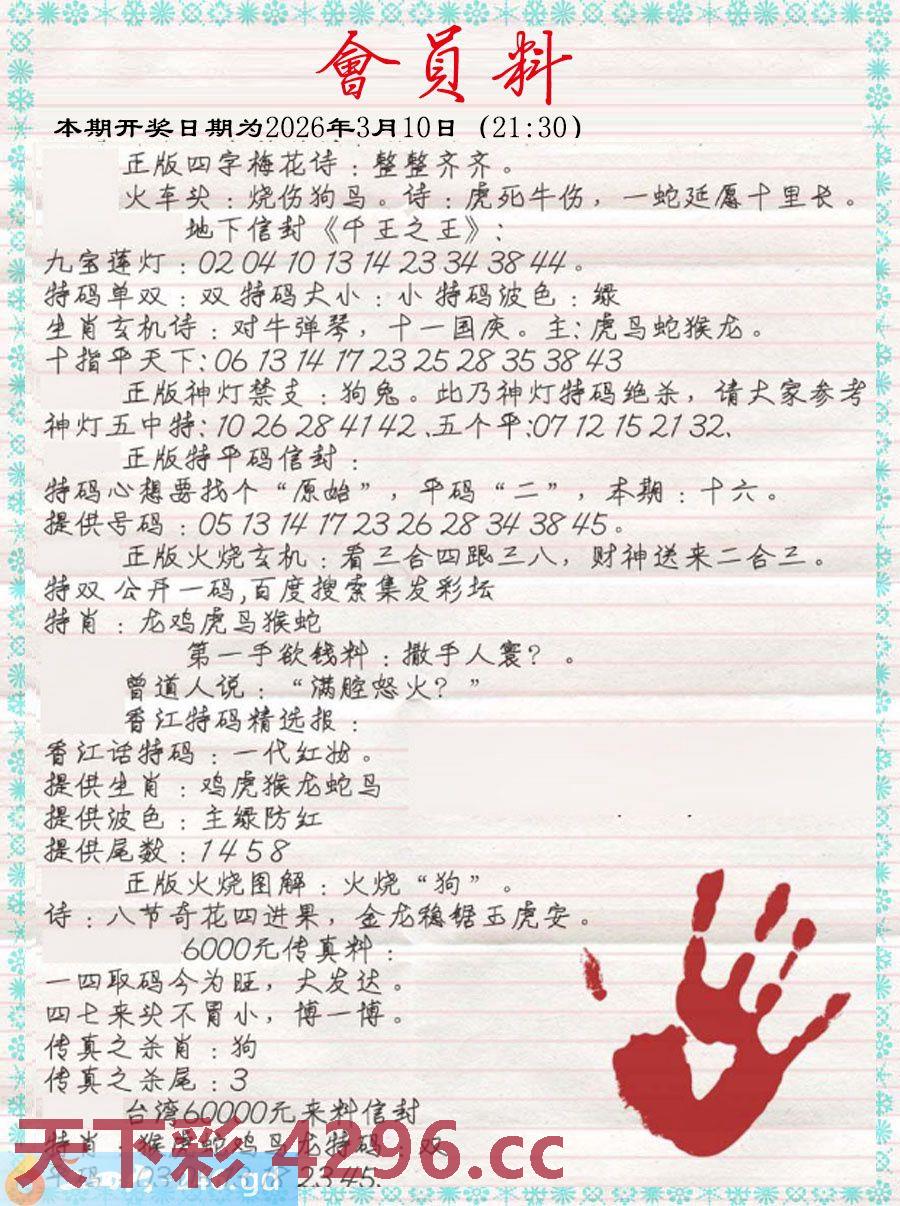 會員料
本期开奖日期为2026年3月10日（21:30）
正版四字梅花诗：整整齐齐。
火车头：烧伤狗马。诗：虎死牛伤，一蛇延愿十里长。
地下信封《千王之王》：
九宝莲灯：02 04 10 13 14 23 34 38 44。
特码单双：双 特码大小：小 特码波色：绿
生肖玄机诗：对牛弹琴，十一国庆。主：虎马蛇猴龙。
十指平天下：06 13 14 17 23 25 28 35 38 43
正版神灯禁支：狗兔。此乃神灯特码绝杀，请大家参考
神灯五中特：10 26 28 41 42、五个平：07 12 15 21 32、
正版特平码信封：
特码心想要找个“原始”，平码“二”，本期：十六。
提供号码：05 13 14 17 23 26 28 34 38 45。
正版火烧玄机：看三合四跟三八，财神送来二合三。
特双 公开一码，百度搜索集发彩坛
特肖：龙鸡虎马猴蛇
第一手欲钱料：撒手人寰？。
曾道人说：“满腔怒火？”
香江特码精选报：
香江话特码：一代红妆。
提供生肖：鸡虎猴龙蛇马
提供波色：主绿防红
提供尾数：1 4 5 8
正版火烧图解：火烧“狗”。
诗：八节奇花四进果，金龙稳锯玉虎安。
6000元传真料：
一四取码今为旺，大发达。
四七来头不冒小，博一博。
传真之杀肖：狗
传真之杀尾：3
台湾60000元来料信封
特肖：猴 蛇鸡马龙特码：双
天下彩4296.cc
23 45.